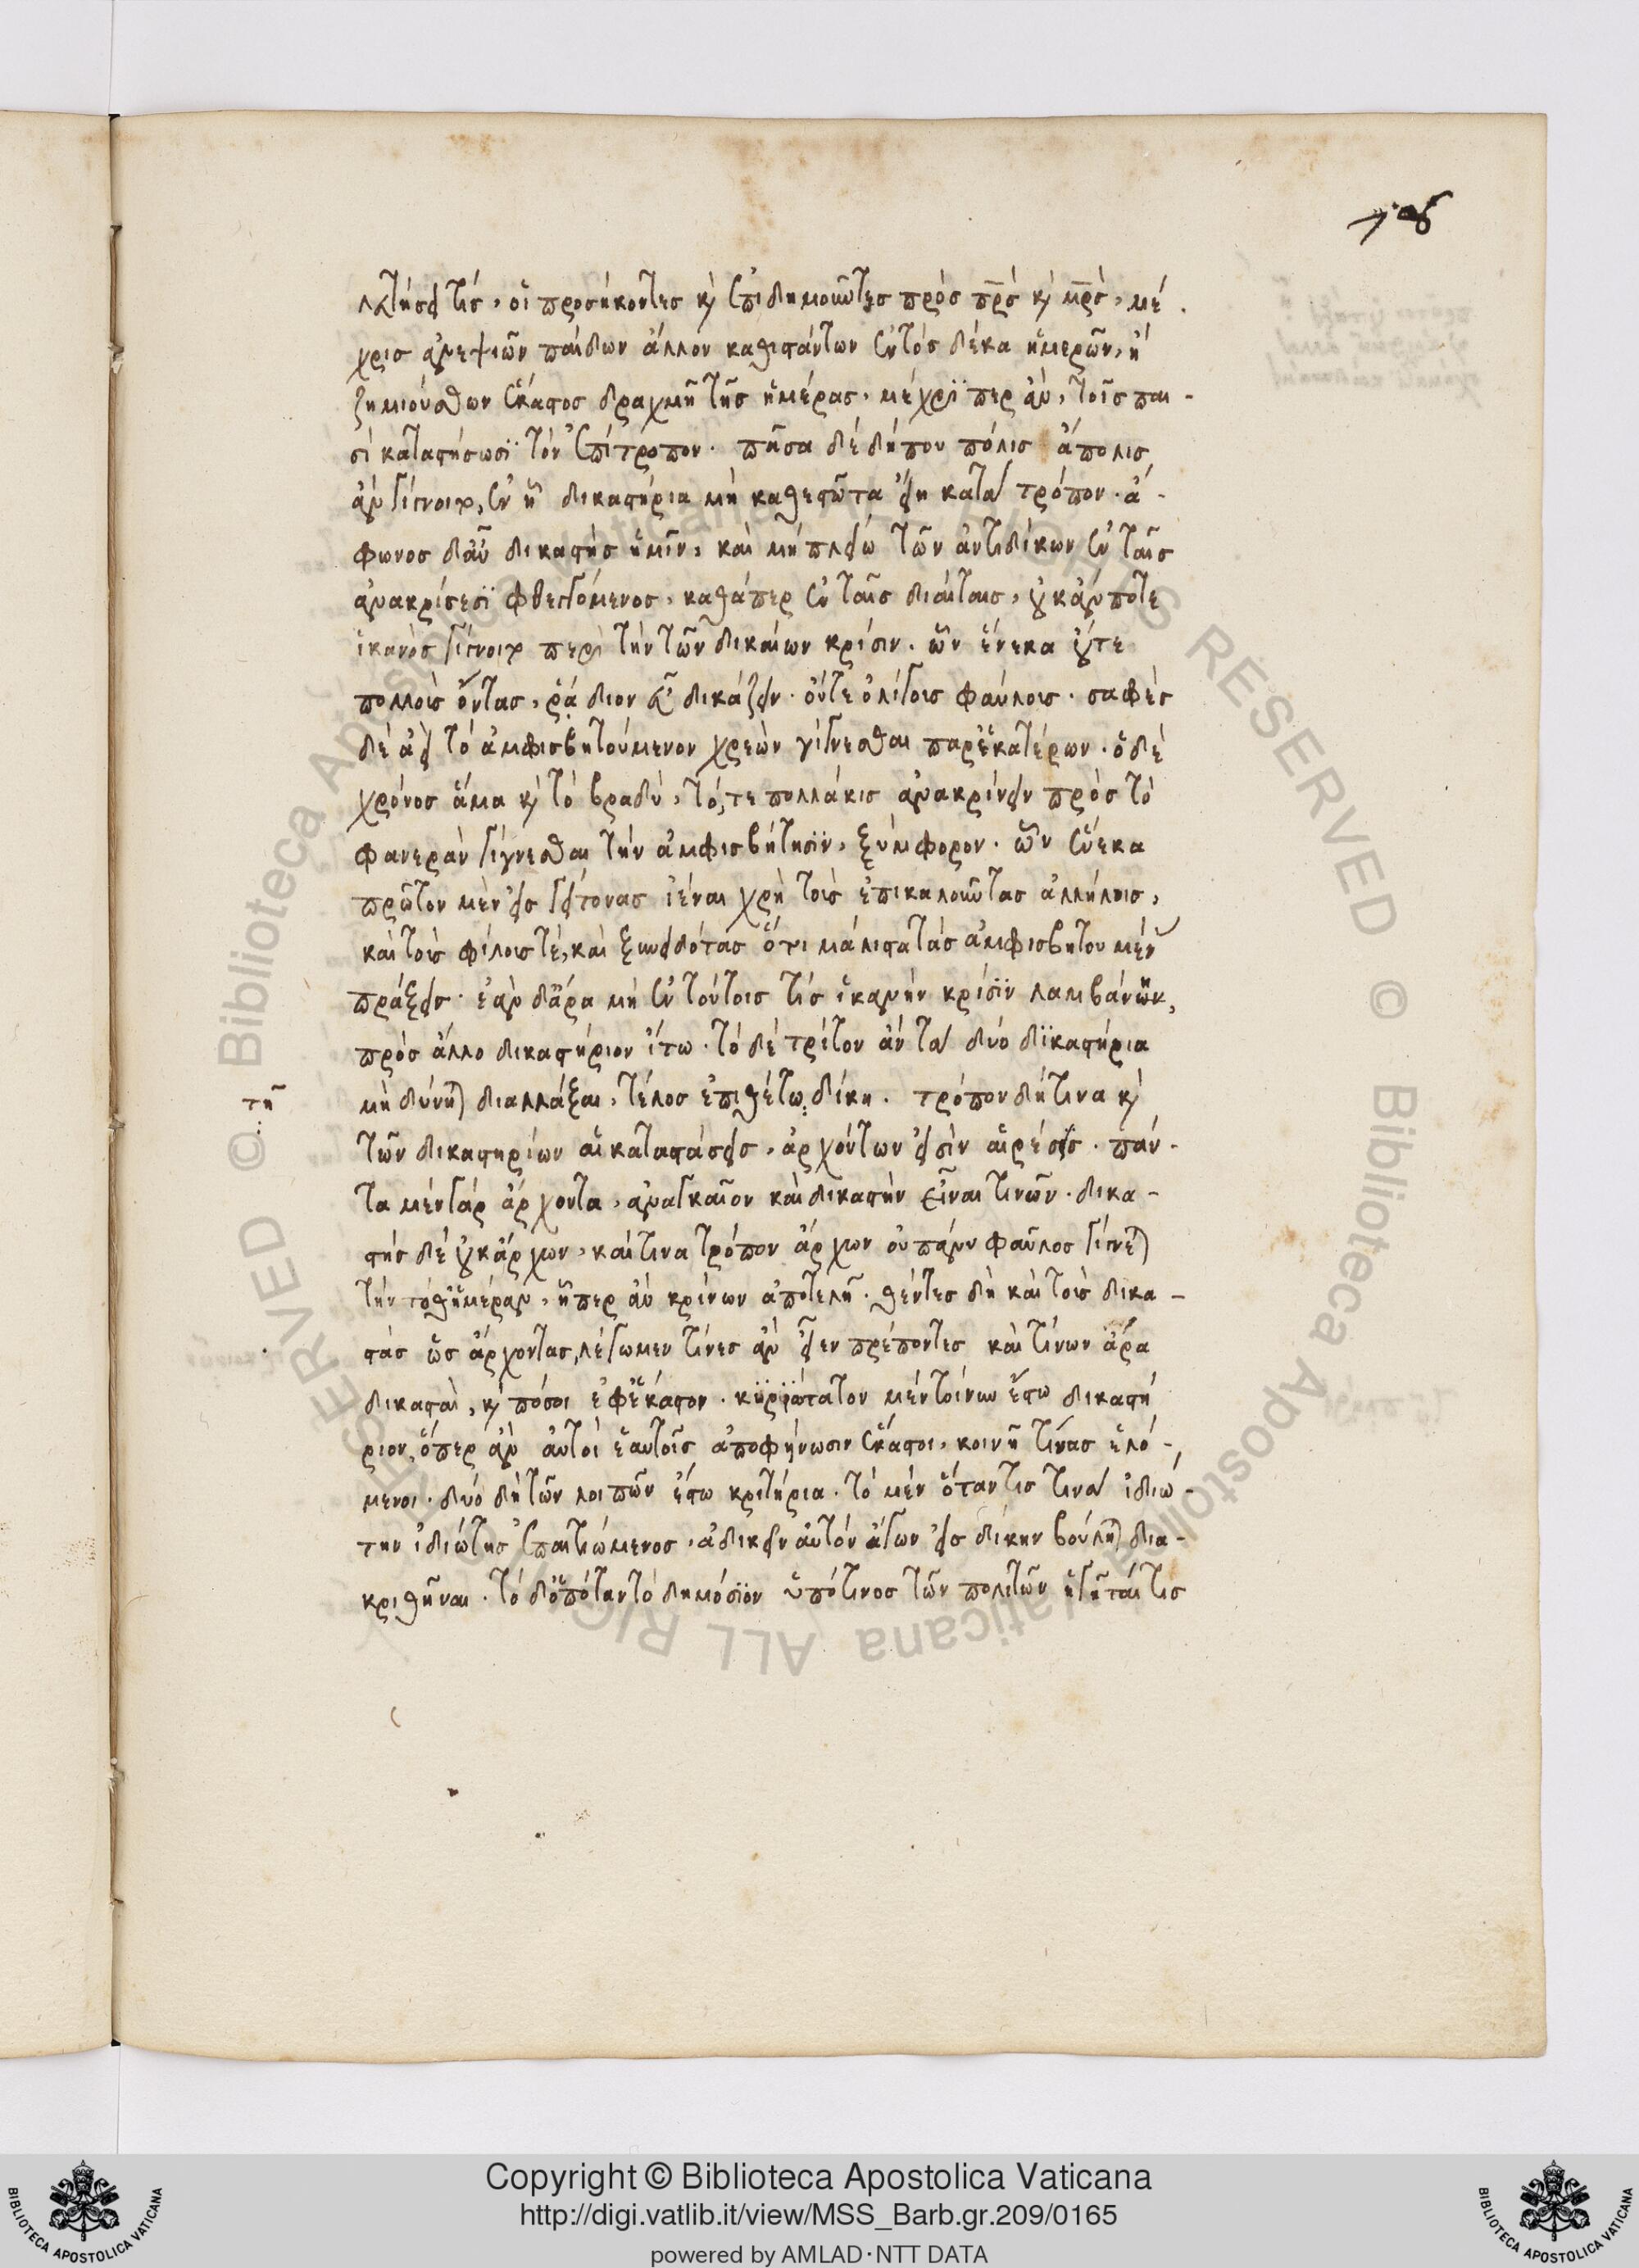 λευτήσει τίς, οἱ προσήκοντες κὶ ἐπιδημοῦντες πρὸς πρσ κὶ μρσ, μέ
χρις ἀνεψιῶν παίδων ἄλλον καθιστάντων ἐντὸς δέκα ἡμερῶν, ἢ
ζημιούσθων ἕκαστος δραχμῇ τῆς ἡμέρας, μέχρϊ περ ἂν, τοῖς παι-
σὶ καταστήσωσϊ τὸν ἐπίτροπον. πᾶσα δὲ δήπου πόλις ἄπολις
ἂν γίγνοιτο, ἐν ᾗ δικαστήρια μὴ καθεστῶτα εἴη κατὰ τρόπον. ἄ-
φωνος δ᾽αὖ δικαστὴς ἡμῖν, καὶ μὴ πλείω τῶν ἀντιδίκων ἐν ταῖς
ἀνακρίσεσϊ φθεγγόμενος, καθάπερ ἐν ταῖς διαίταις, οὐκ ἄν ποτε
ἱκανὸς γίγνοιτο περὶ τὴν τῶν δικαίων κρίσιν. ὧν ἕνεκα οὔτε
πολλοὺς ὄντας, ῥᾴδιον εὖ δικάζειν. οὔτε ὀλίγοις φαύλοις. σαφὲς
δὲ ἀεὶ τὸ ἀμφισβητούμενον χρεὼν γίγνεσθαι παρ᾽ἑκατέρων. ὁ δὲ
χρόνος ἅμα κὶ τὸ βραδὺ, τό, τε πολλάκις ἀνακρίνειν πρὸς τὸ
φανερὰν γίγνεσθαι τὴν ἀμφισβήτησϊν, ξύμφορον. ὧν ἕνεκα
πρῶτον μὲν εἰς γείτονας ἰέναι χρὴ τοὺς ἐπικαλοῦντας ἀλλήλοις,
καὶ τοὺς φίλους τέ, καὶ ξυνειδότας ὅτι μάλιστα τὰς ἀμφισβητουμένας
πράξεις. ἐὰν δ᾽ἄρα μὴ ἐν τούτοις τίς ἱκανὴν κρίσϊν λαμβάνῃ,
πρὸς ἄλλο δικαστήριον ἴτω. τὸ δὲ τρίτον ἂν τὰ δύο δϊκαστήρια
μὴ δύνηται διαλλάξαι, τέλος ἐπιθέτω δίκη. τρόπον δή τινα κὶ
τῆ
τῶν δικαστηρίων αἱ καταστάσεις, ἀρχόντων εἰσὶν αἱρέσεις. πάν-
τα μὲν γὰρ ἄρχοντα, ἀναγκαῖον καὶ δικαστὴν εἶναι τινῶν. δικα-
στὴς δὲ οὐκ ἄρχων, καί τινα τρόπον ἄρχων οὐ πάνυ φαῦλος γίγνεται
τὴν τόθ᾽ἡμέραν, ᾗπερ ἂν κρίνων ἀποτελῇ. θέντες δὴ καὶ τοὺς δικα-
στὰς ὡς ἄρχοντας, λέγωμεν τίνες ἂν εἶεν πρέποντες καὶ τίνων ἄρα
δικασταὶ, κὶ πόσοι ἐφ᾽ἕκαστον. κϋρϊώτατον μὲν τοίνυν ἔστω δικαστή
ριον, ὅπερ ἂν αὐτοὶ ἑαυτοῖς ἀποφήνωσιν ἕκαστοι, κοινῇ τίνας ἑλό-
μενοι. δύο δὴ τῶν λοιπῶν ἔστω κριτήρια. τὸ μὲν ὅταν τις τινὰ ἰδιώ-
την ἰδιώτης ἐπαιτιώμενος, ἀδικεῖν αὑτὸν ἄγων εἰς δίκην βούληται δια-
κριθῆναι. τὸ δ᾽ὁπόταν τὸ δημόσϊον ὑπό τινος τῶν πολιτῶν ἡγῆται τις
Copyright © Biblioteca Apostolica Vaticana
http://digi.vatlib.it/view/MSS_Barb.gr.209/0165
powered by AMLAD·NTT DATA
BIBLIOTECA APOSTOLICA VATICANA
BIBLIOTECA APOSTOLICA VATICANA
© Biblioteca Apostolica Vaticana ALL RIGHTS RESERVED © Biblioteca Apostolica Vaticana ALL RIGHTS RESERVED